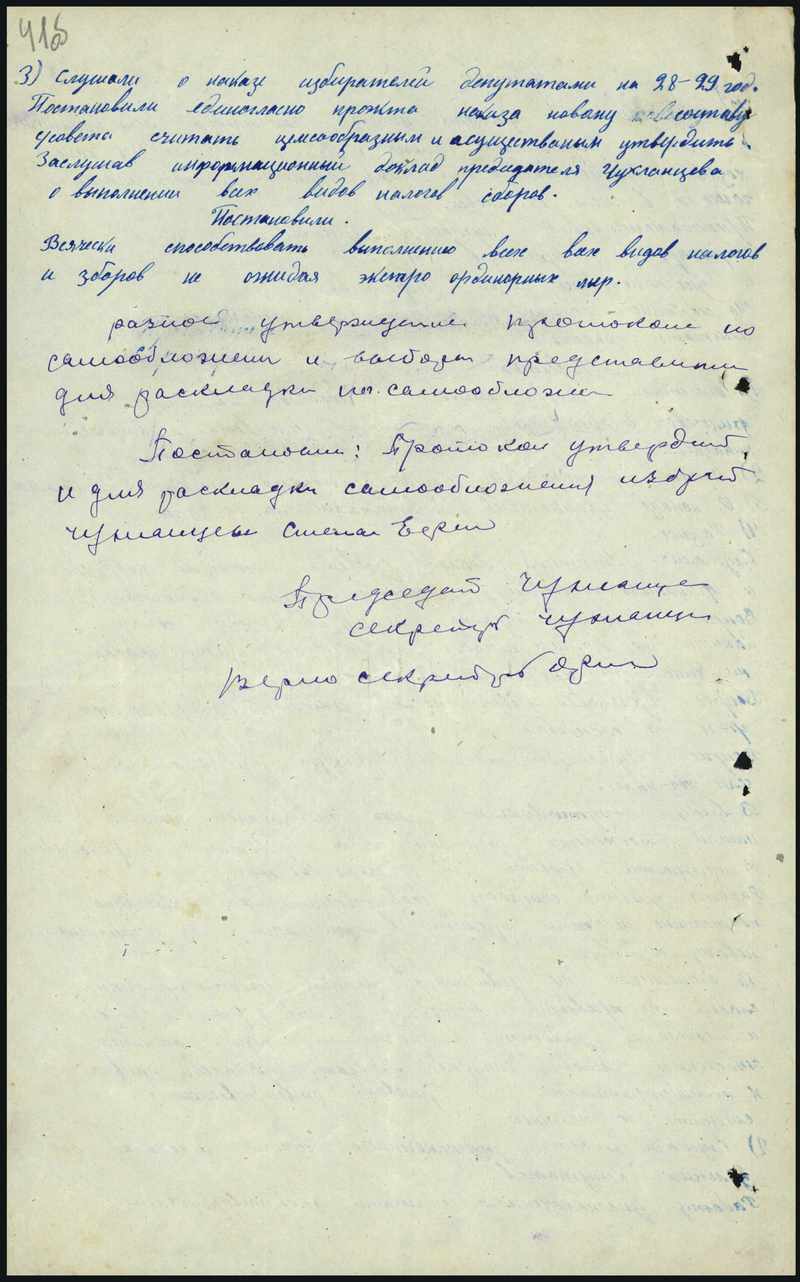 3) Слушали о наказе избирателей депутатами на 28-29 год.
Постановили единогласно проэкта наказа новому составу
с/совета считать целесообразным и осуществимым утвердить.
Заслушав информационный доклад предидателя Чухланцева
о выполнении всех видов налогов сборов.
Постановили.
Всячески способствовать выполнению всех видов налогов
и зборов не ожидая экстро ординорных мер.
разное утверждение протокола по
самообложении и выборы представители
для раскладки по самообложении
Постановили: Протокол утвердит
и для раскладки самообложения избрат
Председат
секретрь
Верно секретрь